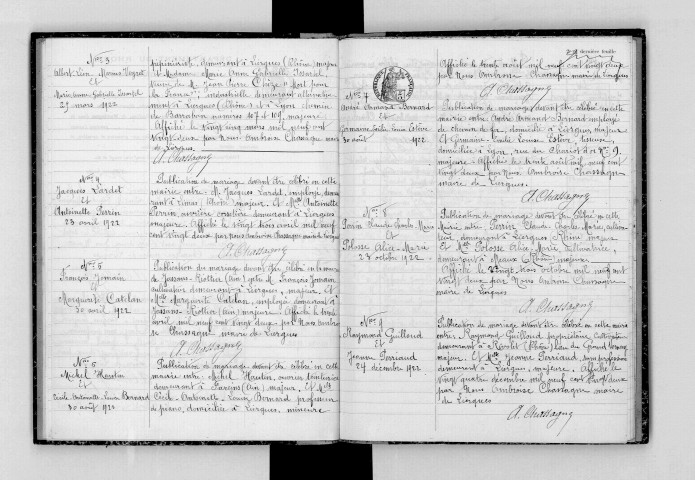 Nº 3
Albert Léon
et
25 mars 1922
demeurant à Liergues (Rhône) majeur
et Madame Marie Anne Gabrielle
Veuve de M. Jean Pierre
France", industrielle demeurant
à Liergues (Rhône) et à Lyon chemin
de numéros 107 et 109, majeure
Affiché le vingt cinq mars mil neuf cent
vingt deux par Nous Ambroise Chassagny maire
de Liergues.
A. Chassagny
Nº 4
Jacques Lardet
et
Antoinette Perrin
23 avril 1922
Publication de mariage devant être célébré en cette
mairie entre M. Jacques Lardet, employé, demeu-
rant à Limas Rhône majeur. Et Mlle Antoinette
Perrin, ouvrière demeurant à Liergues
majeure. Affiché le vingt trois avril mil neuf cent
vingt deux par Nous Ambroise Chassagny maire de Liergues
A. Chassagny
Nº 5
François Jomain
et
Marguerite Catelan
30 avril 1922
Publication de mariage devant être célébré en la mairie
de Jassans Riottier (Ain) entre M. François Jomain
demeurant à Liergues, majeur. Et
Mlle Marguerite Catelan, employée demeurant à
Jassans Riottier (Ain) majeure. Affiché le trente
avril mil neuf cent vingt deux par Nous Ambroise
Chassagny maire de Liergues
A. Chassagny
Nº 6
Michel
et
Cécile Antoinette Louise Bernard
30 août 1922
Publication de mariage devant être célébré en cette
mairie entre Michel ouvrier
demeurant à Pareins (Ain) majeur. Et Mlle
Cécile Antoinette Louise Bernard professeur
de piano, domiciliée à Liergues, mineure
dernière feuille
Affiché le trente août mil neuf cent vingt deux
par Nous Ambroise Chassagny maire de Liergues
A. Chassagny
Nº 7
André Armand Bernard
et
Germaine Emilie Louise Estève
30 août 1922
Publication de mariage devant être célébré en cette
mairie entre André Armand Bernard employé
de chemin de fer, domicilié à Liergues, majeur
Et Germaine Emilie Louise Estève,
domiciliée à Lyon, rue du Chariot d'or Nº 9,
majeure. Affiché le trente août mil neuf cent
vingt deux par Nous Ambroise Chassagny
maire de Liergues.
A. Chassagny
Nº 8
Perrin Claude Charles Marie
et
Polosse Alice Marie
23 octobre 1922
Publication de mariage devant être célébré en cette
Mairie entre Perrin Claude Charles Marie, cultiva-
teur, demeurant à Liergues Rhône majeur
Et Mlle Polosse Alice Marie, cultivatrice,
demeurant à Meaux (Rhône) majeure.
Affiché le vingt trois octobre mil neuf cent
vingt deux par Nous Ambroise Chassagny
maire de Liergues
A. Chassagny
Raymond Guilloud
Et
Jeanne Perriaud
24 décembre 1922
Publication de mariage devant être célébré en cette mairie
entre Raymond Guilloud propriétaire Cultivateur
demeurant à
majeur. Et Mlle Jeanne Perriaud, sans profession
demeurant à Liergues, majeure. Affiché le
vingt quatre décembre mil neuf cent vingt deux
par Nous Ambroise Chassagny maire
de Liergues
A. Chassagny